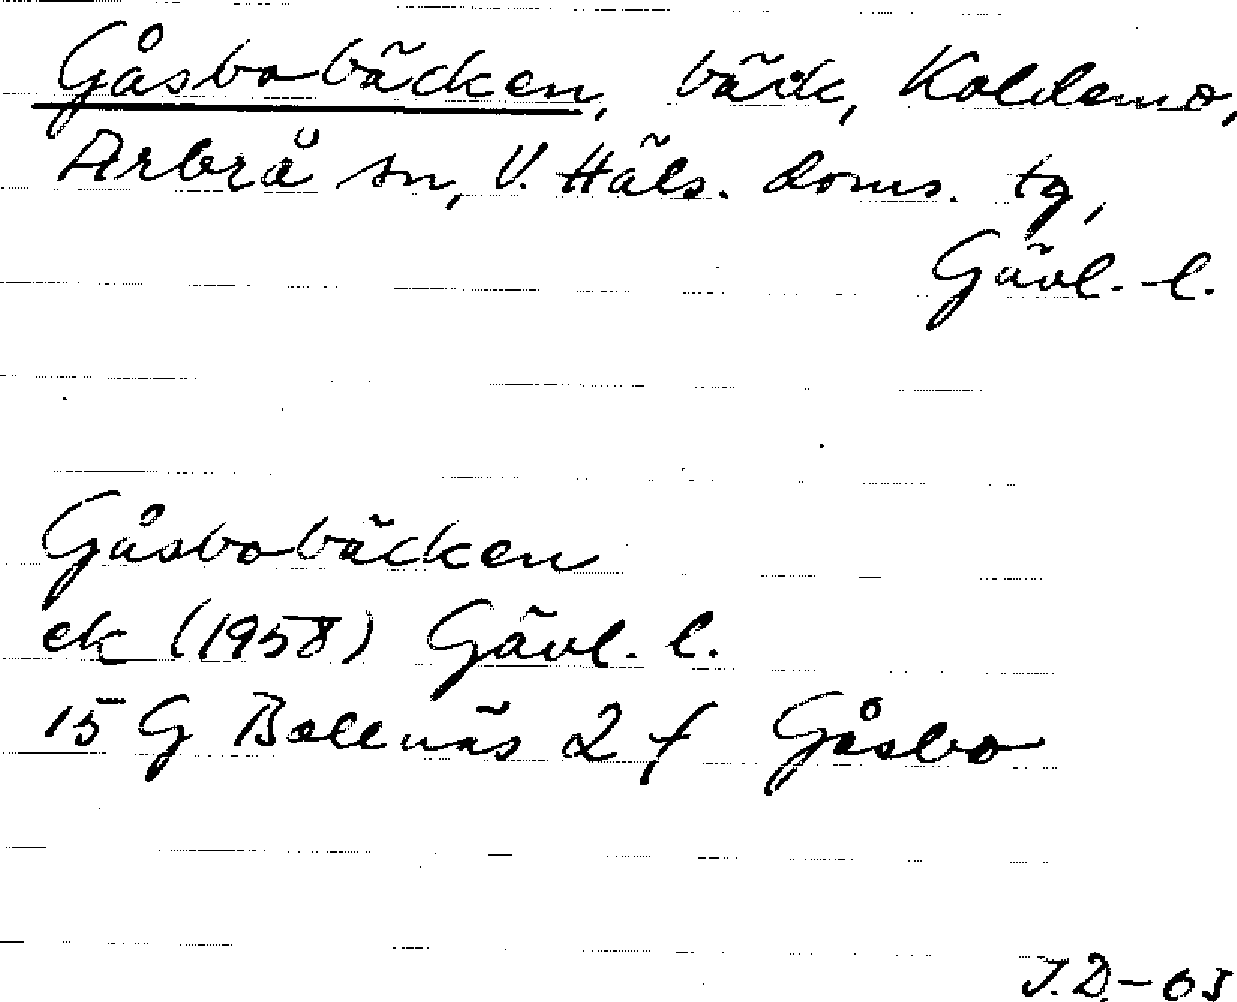 Gåsbobäcken, bäck, Koldemo,
Arbrå sn, V. Häls. doms. tg,
Gävl. l.
Gåsbobäcken
ek (1958) Gävl. l.
15 G Bollnäs 2 f Gåsbo
J.D-05